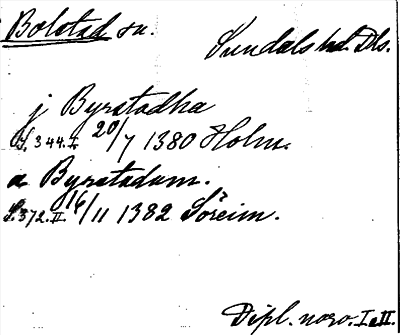 Bolstad sn.
Sundals hd. Dls.
j Byrstadha
S. 344. I. 20/7 1380 Holm.
a Byrstadum.
S. 372. II. 16/11 1382 Söreim.
Dipl. norv. I o II.